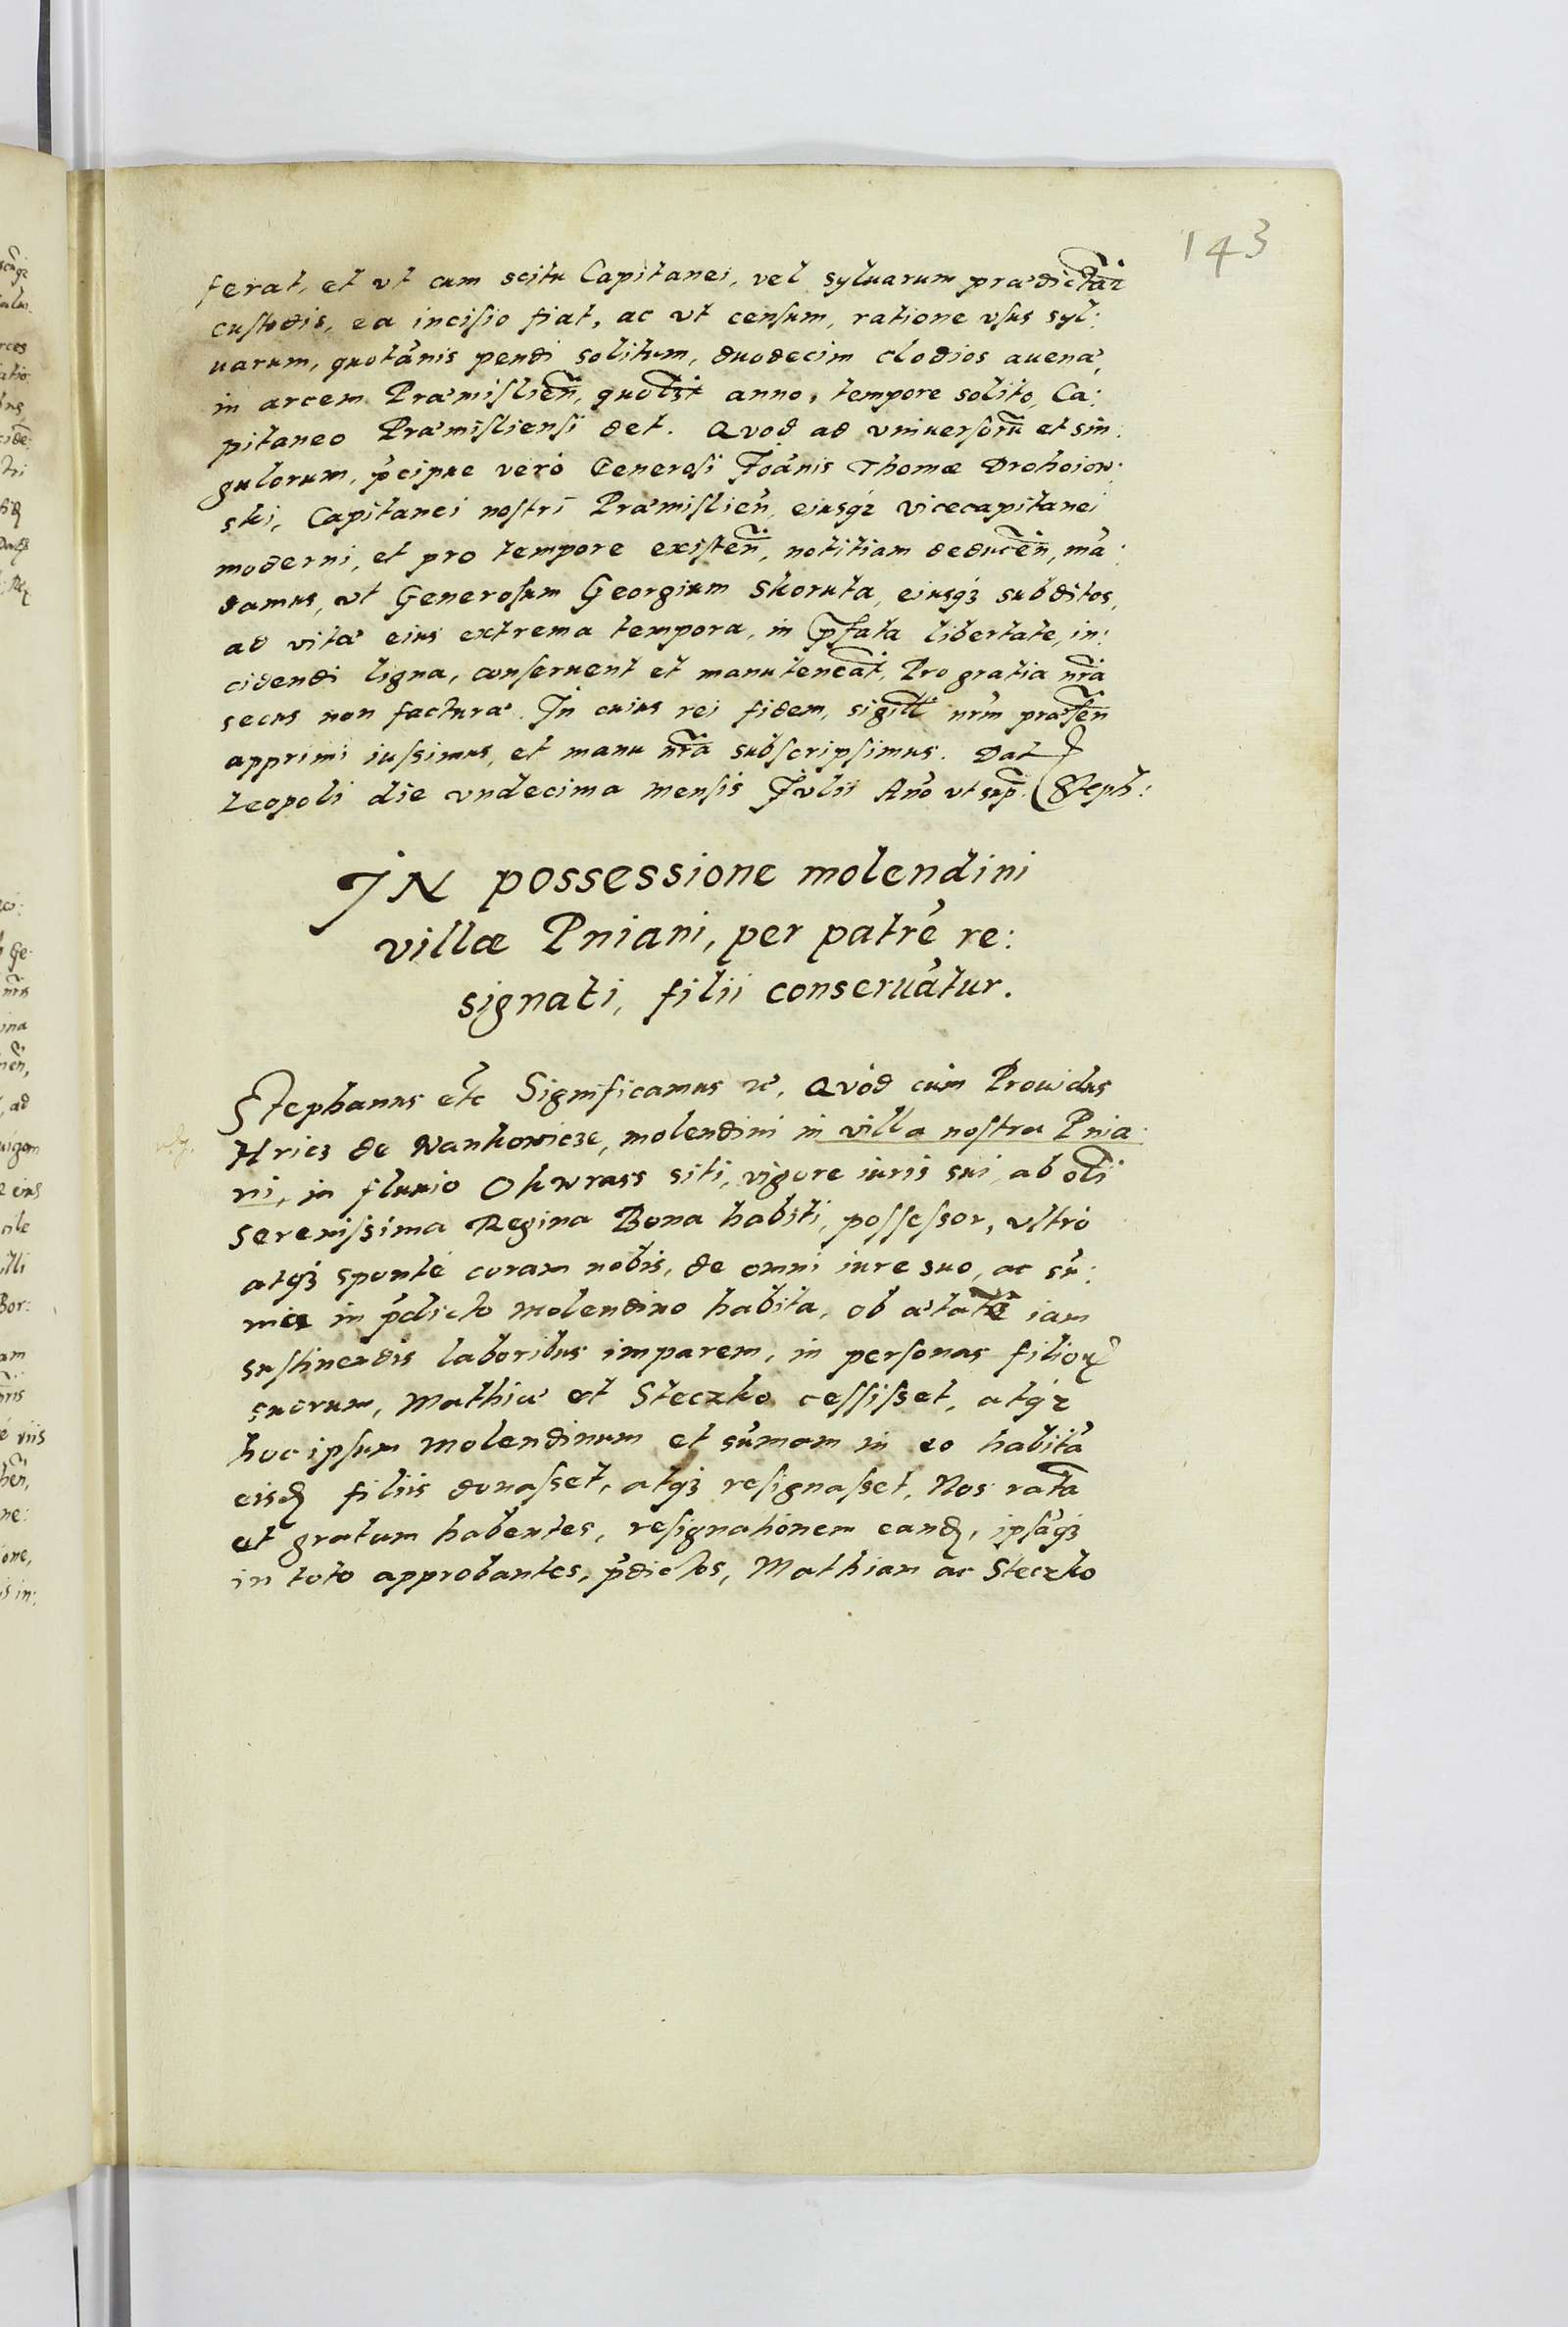 143
ferat, et vt cum scitu Capitanei, vel syluarum prædictar̃
custodis, ea incisio fiat, ac vt censum, ratione vsus syl:
uarum, quotãnis pendi solitum, duodecim clodios auenæ,
in arcem Præmislieñ, quolibꝫ anno, tempore solito, Ca:
pitaneo Præmisliensi det. Quod ad vniuersorũ et sin:
gulorum, p̃cipue verò Generosi Joãnis Thomæ Drohoiow:
ski, Capitanei nostri Præmislieñ, eiusqꝫ Vicecapitanei
moderni, et pro tempore existeñ, notitiam deduceñ, mã:
damus, vt Generosum Georgium Skoruta, eiusqꝫ subditos,
ad vitæ eius extrema tempora, in p̃fata libertate, in:
cidendi ligna, conseruent et manuteneãt, Pro gratia nr̃a
secus non facturæ. In cuius rei fidem, sigill̃ nr̃m præseñ
apprimi iussimus, et manu nr̃a subscripsimus. Dat̃
Leopoli die vndecima mensis Julii Año vt sup̃. Steph:
IN possessione molendini
villæ Pniani, per patrẽ re:
signati, filii conseruãtur.
Stephanus etc Significamus ꝛc. Quòd cùm Prouidus
Hricz de Wankowicze, molendini in villa nostra Pnia:
ni, in fluuio Okwrass siti, vigore iuris sui, ab olĩ
Serenissima Regina Bona habiti, possessor, vltrò
atqꝫ spontè coram nobis, de omni iure suo, ac sũ:
ma in p̃dicto molendino habita, ob ætatẽ iam
sustinendis laboribus imparem, in personas filioꝝ
suorum, Mathiæ et Steczko cessisset, atqꝫ
hoc ipsum molendinum et sũmam in eo habitã
eisdꝫ filiis donasset, atqꝫ resignasset, Nos ratã
et gratum habentes, resignationem eandꝫ, ipsãqꝫ
in toto approbantes, p̃dictos, Mathiam ac Steczko